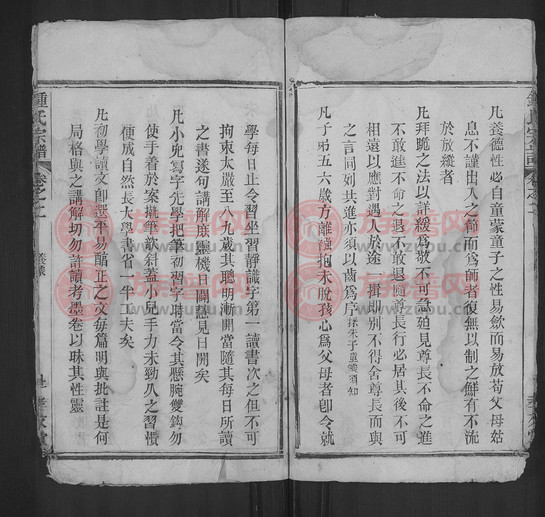 凡養德性必自童蒙童子之性易歛而易放苟父母姑
息不謹出入之節而爲師者復無以制之鮮有不流
於放縱者
凡拜跪之法以詳緩爲敬不可急廹見尊長不命之進
不敢進不命之退不敢退隨尊長行必居其後不可
相遠以應對遇人於途一揖卽別不得舍尊長而與
之言同如共進亦須以齒爲序採朱子童蒙須知
凡子弟五六歲方離襁抱未脫孩心爲父母者卽令就
學每日止令習坐習靜識字第一讀書次之但不可
拘束太嚴至八九歲其聰明漸開當隨其每日所讀
之書逐句講解庶靈機日闢慧見日開矣
凡小兒寫字先學把筆初習字時當令其懸腕雙鈎勿
使手着於案搦筆欹斜蓋小兒手力未勁久之習慣
便成自然長大學書省一半工夫矣
凡初學讀文卽選平易醕正之文每篇明與批註是何
局格與之講解切勿許讀考墨卷以昧其性靈
鍾氏宗譜
卷之二
蒙養